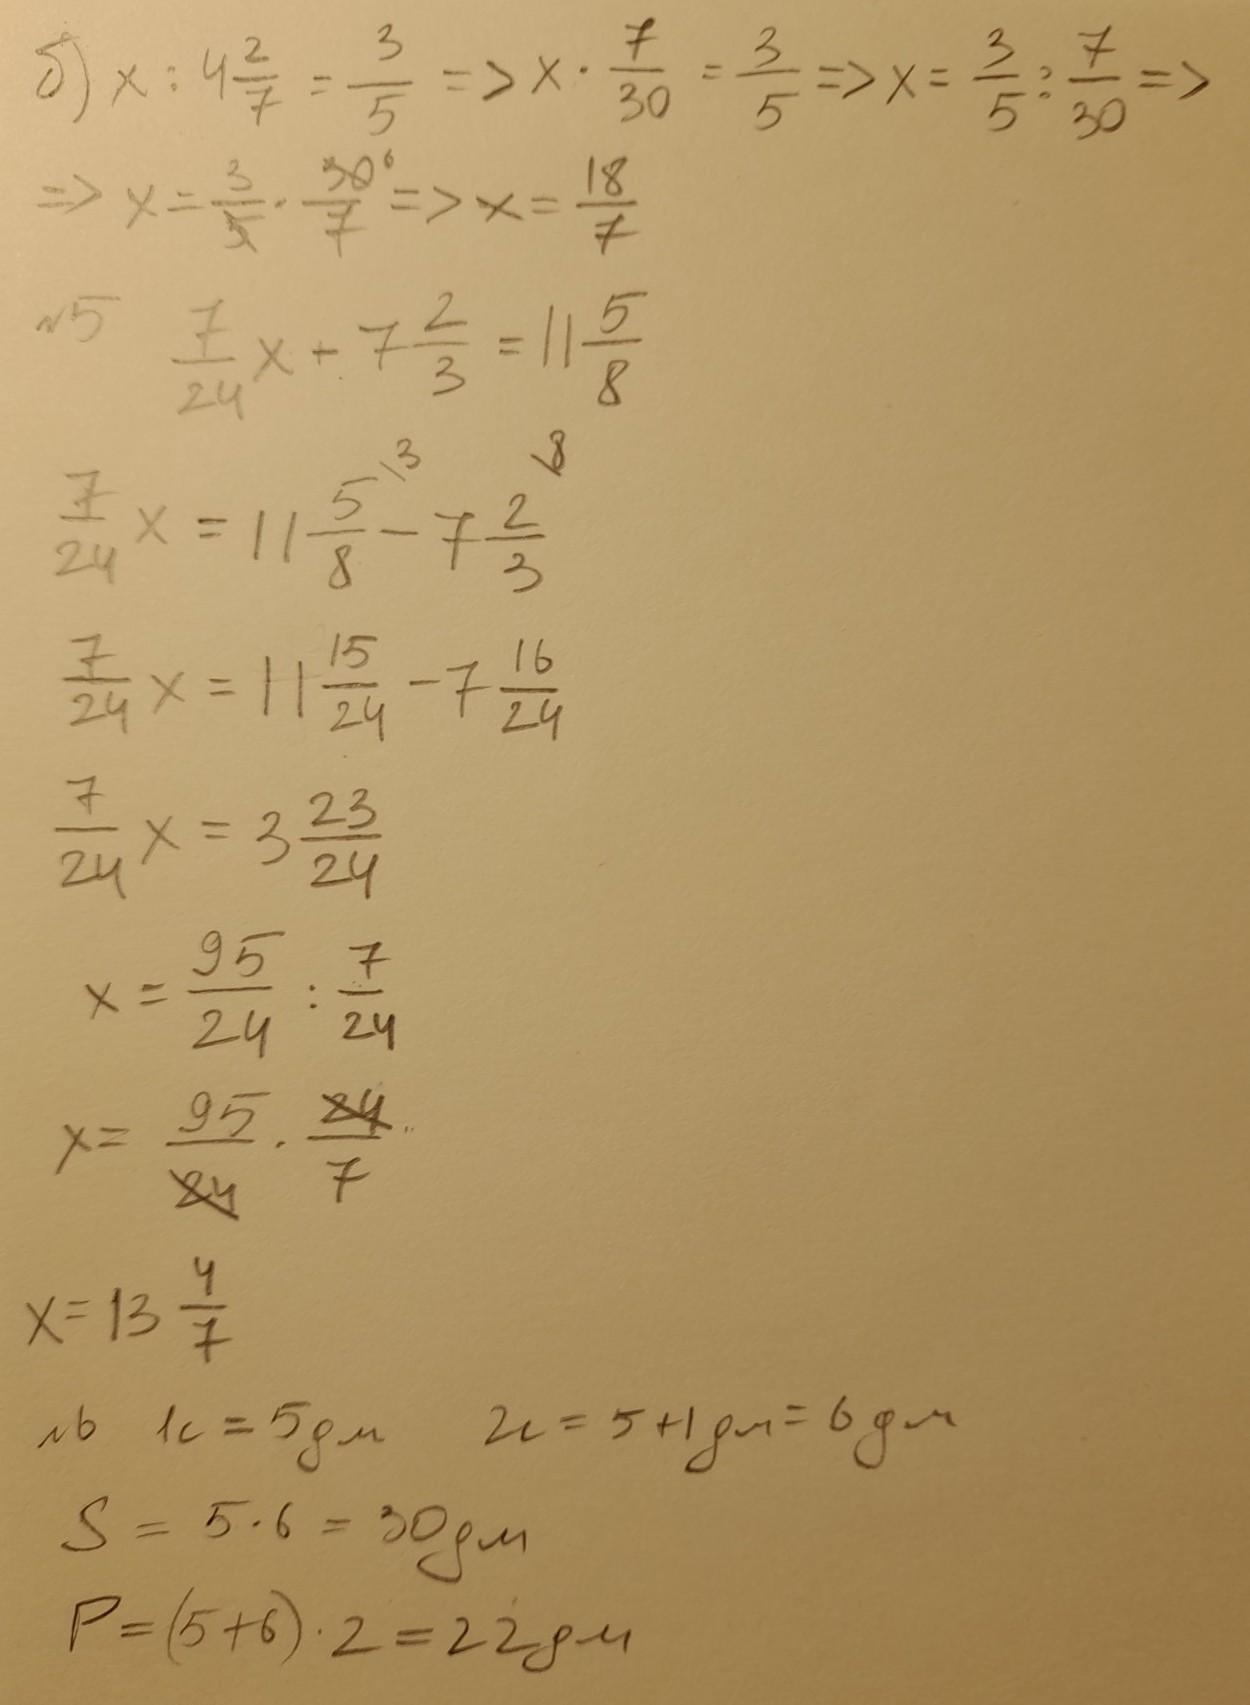 б) x : 4 2/7 = 3/5 => x · 7/30 = 3/5 => x = 3/5 : 7/30 =>
=> x = 3/5 · 30⁶/7 => x = 18/7
№5 7/24 x + 7 2/3 = 11 5/8
7/24 x = 11 5/8 \3 - 7 2/3 \8
7/24 x = 11 15/24 - 7 16/24
7/24 x = 3 23/24
x = 95/24 : 7/24
x = 95/24 · 24/7
x = 13 4/7
№6 1с = 5дм 2с = 5+1дм = 6дм
S = 5·6 = 30дм
P = (5+6)·2 = 22дм